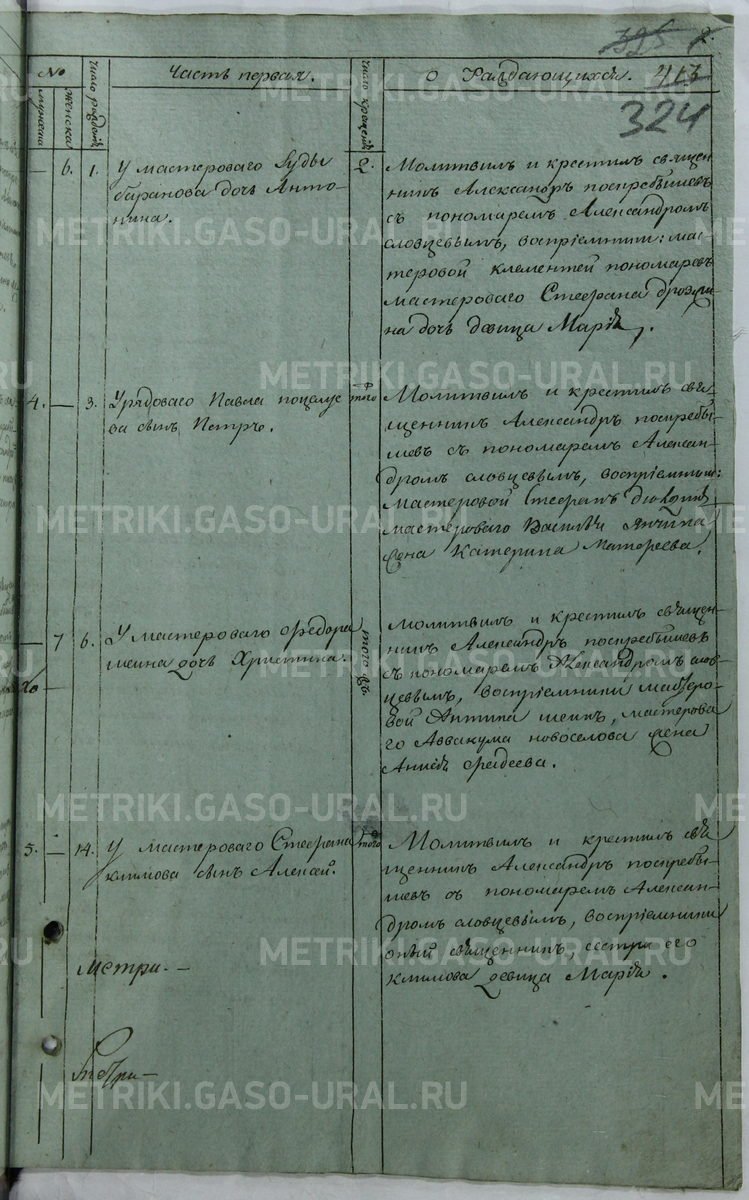 395 2.
№
мужеска
женска
число рождетѣ
Часть первая.
число крещенїѣ
О Раждающихся.
413
324
— 6. 1.
У мастероваго Іуды
баранова дочь Анто-
нина.
2.
Молитвилъ и крестилъ священ
никъ Александръ поспребышевъ
съ пономаремъ Александромъ
словцевымъ, воспріемники: мас
теровой клементей пономаревъ
мастероваго Стефана
на дочь двица Марія.
4. — 3.
Урядоваго Павла поцелуе
ва сынъ Петръ.
того
Молитвилъ и крестилъ свя
щенникъ Александръ поспребы
шевъ съ пономаремъ Алексан-
дромъ словцевымъ, воспріемники:
мастеровой Стефанъ
мастероваго Василья
жена Катерина Матфеева.
— 7 6.
У мастероваго Федора
шеина дочь Христина.
того
Молитвилъ и крестилъ священ
никъ Александръ поспребышевъ
съ пономаремъ Александромъ слов
цевымъ, воспріемники мастеро
вой Антипа шеинъ, мастерова
го Аввакума новоселова жена
Анисья фадеева.
5. — 14.
У мастероваго Стефана
климова сынъ Алексей.
того
Молитвилъ и крестилъ свя
щенникъ Александръ поспребы
шевъ съ пономаремъ Алексан-
дромъ словцевымъ, воспріемники
оный священникъ, сестра его
климова девица Марія.
Метри. —
METRIKI.GASO-URAL.RU